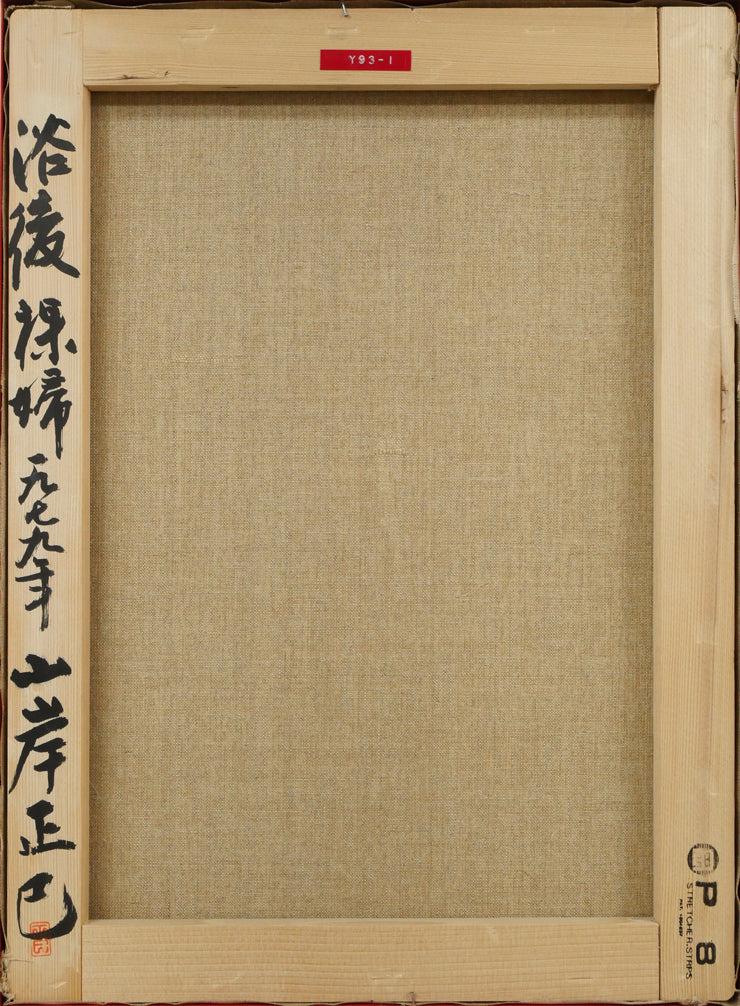 Y93-1
浴後裸婦 一九七九年 山岸正巳
P 8
STRETCHER.STRPS